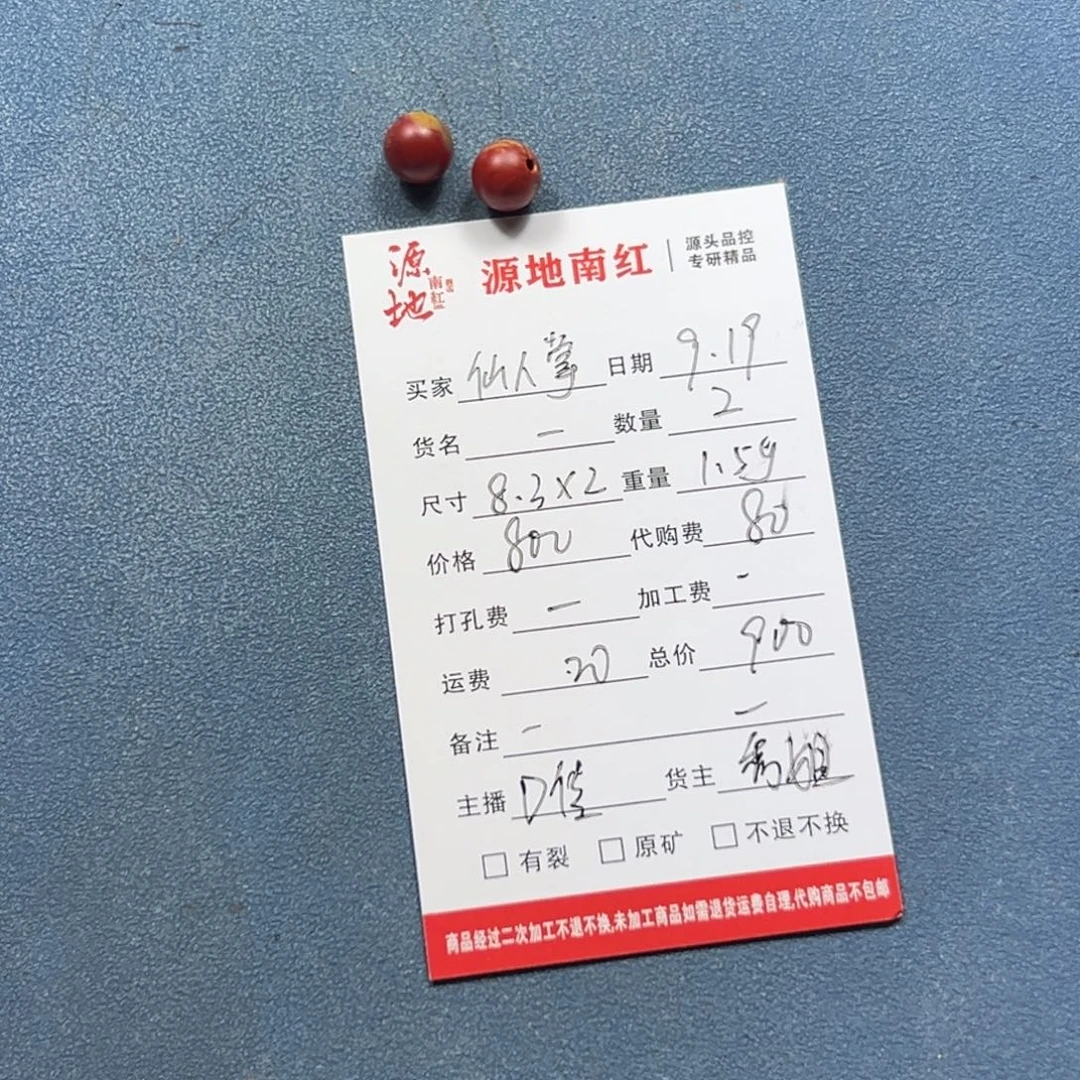 源地
南红
源地南红
源头品控
专研精品
买家 仙人掌 日期 9.19
货名 一 数量 2
尺寸 8.3×2 重量 1.5g
价格 800 代购费 80
打孔费 一 加工费 -
运费 20 总价 900
备注 - 一
主播 D佳 货主
□ 有裂 □ 原矿 □ 不退不换
商品经过二次加工不退不换,未加工商品如需退货运费自理,代购商品不包邮